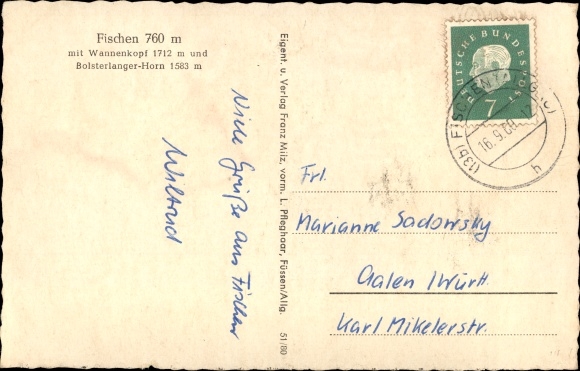 Fischen 760 m
mit Wannenkopf 1712 m und
Bolsterlanger-Horn 1583 m
Viele Grüße aus Fischen
Wiltrud
Eigent. u. Verlag Franz Milz, vorm. L. Pfleghaar, Füssen/Allg. 51/80
DEUTSCHE BUNDESPOST
7
(13b) FISCHEN
16.9.60
h
Frl.
Marianne Sadowsky
Aalen /Württ.
Karl Mikelerstr.